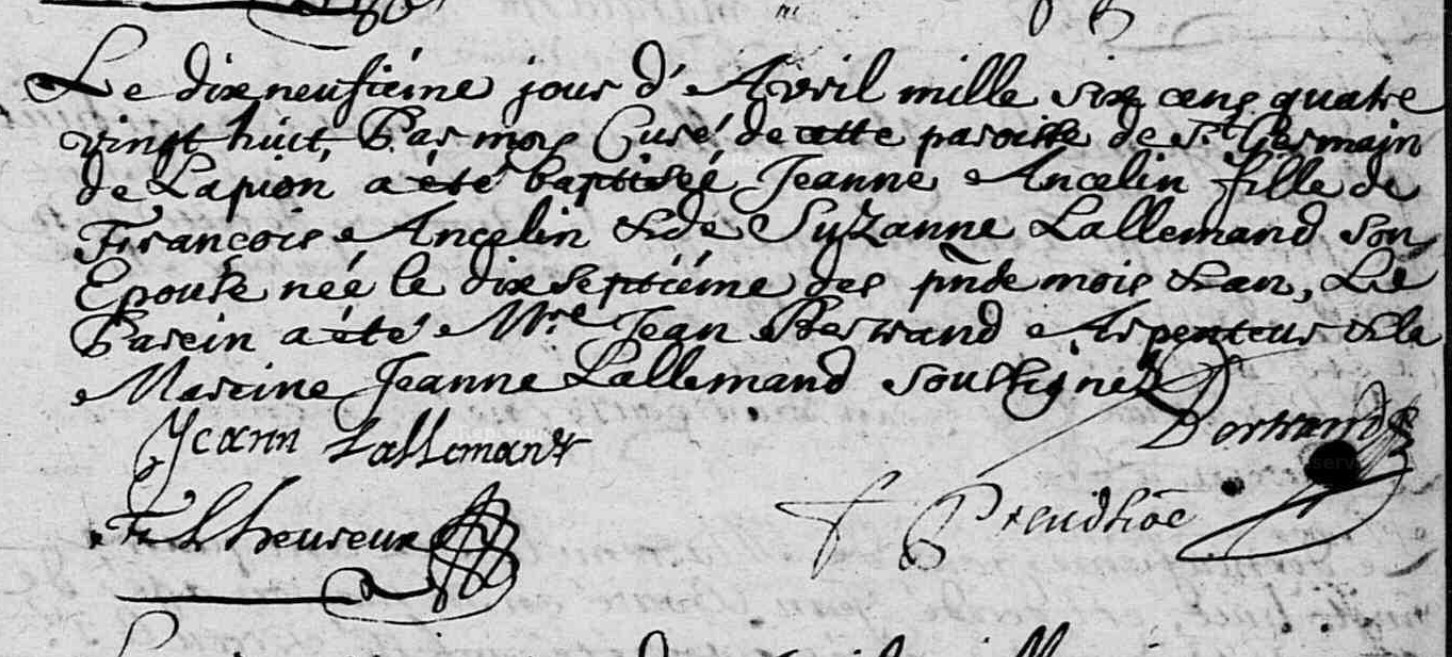 Le dixneufiéme jour d'Avril mille six cens quatre
vingt huit, Par moy Curé de cette paroisse de St. Germain
de Lapion a été baptisée Jeanne Ancelin fille de
François Ancelin & de Suzanne Lallemand son
Epouse née le dixseptiéme des pñde mois & an, Le
Parein a été Mre Jean Bertrand Arpenteur & la
Mareine Jeanne Lallemand soussignez
Jeann Lallemant
Bertrand
F Lheureux
Preudhõe